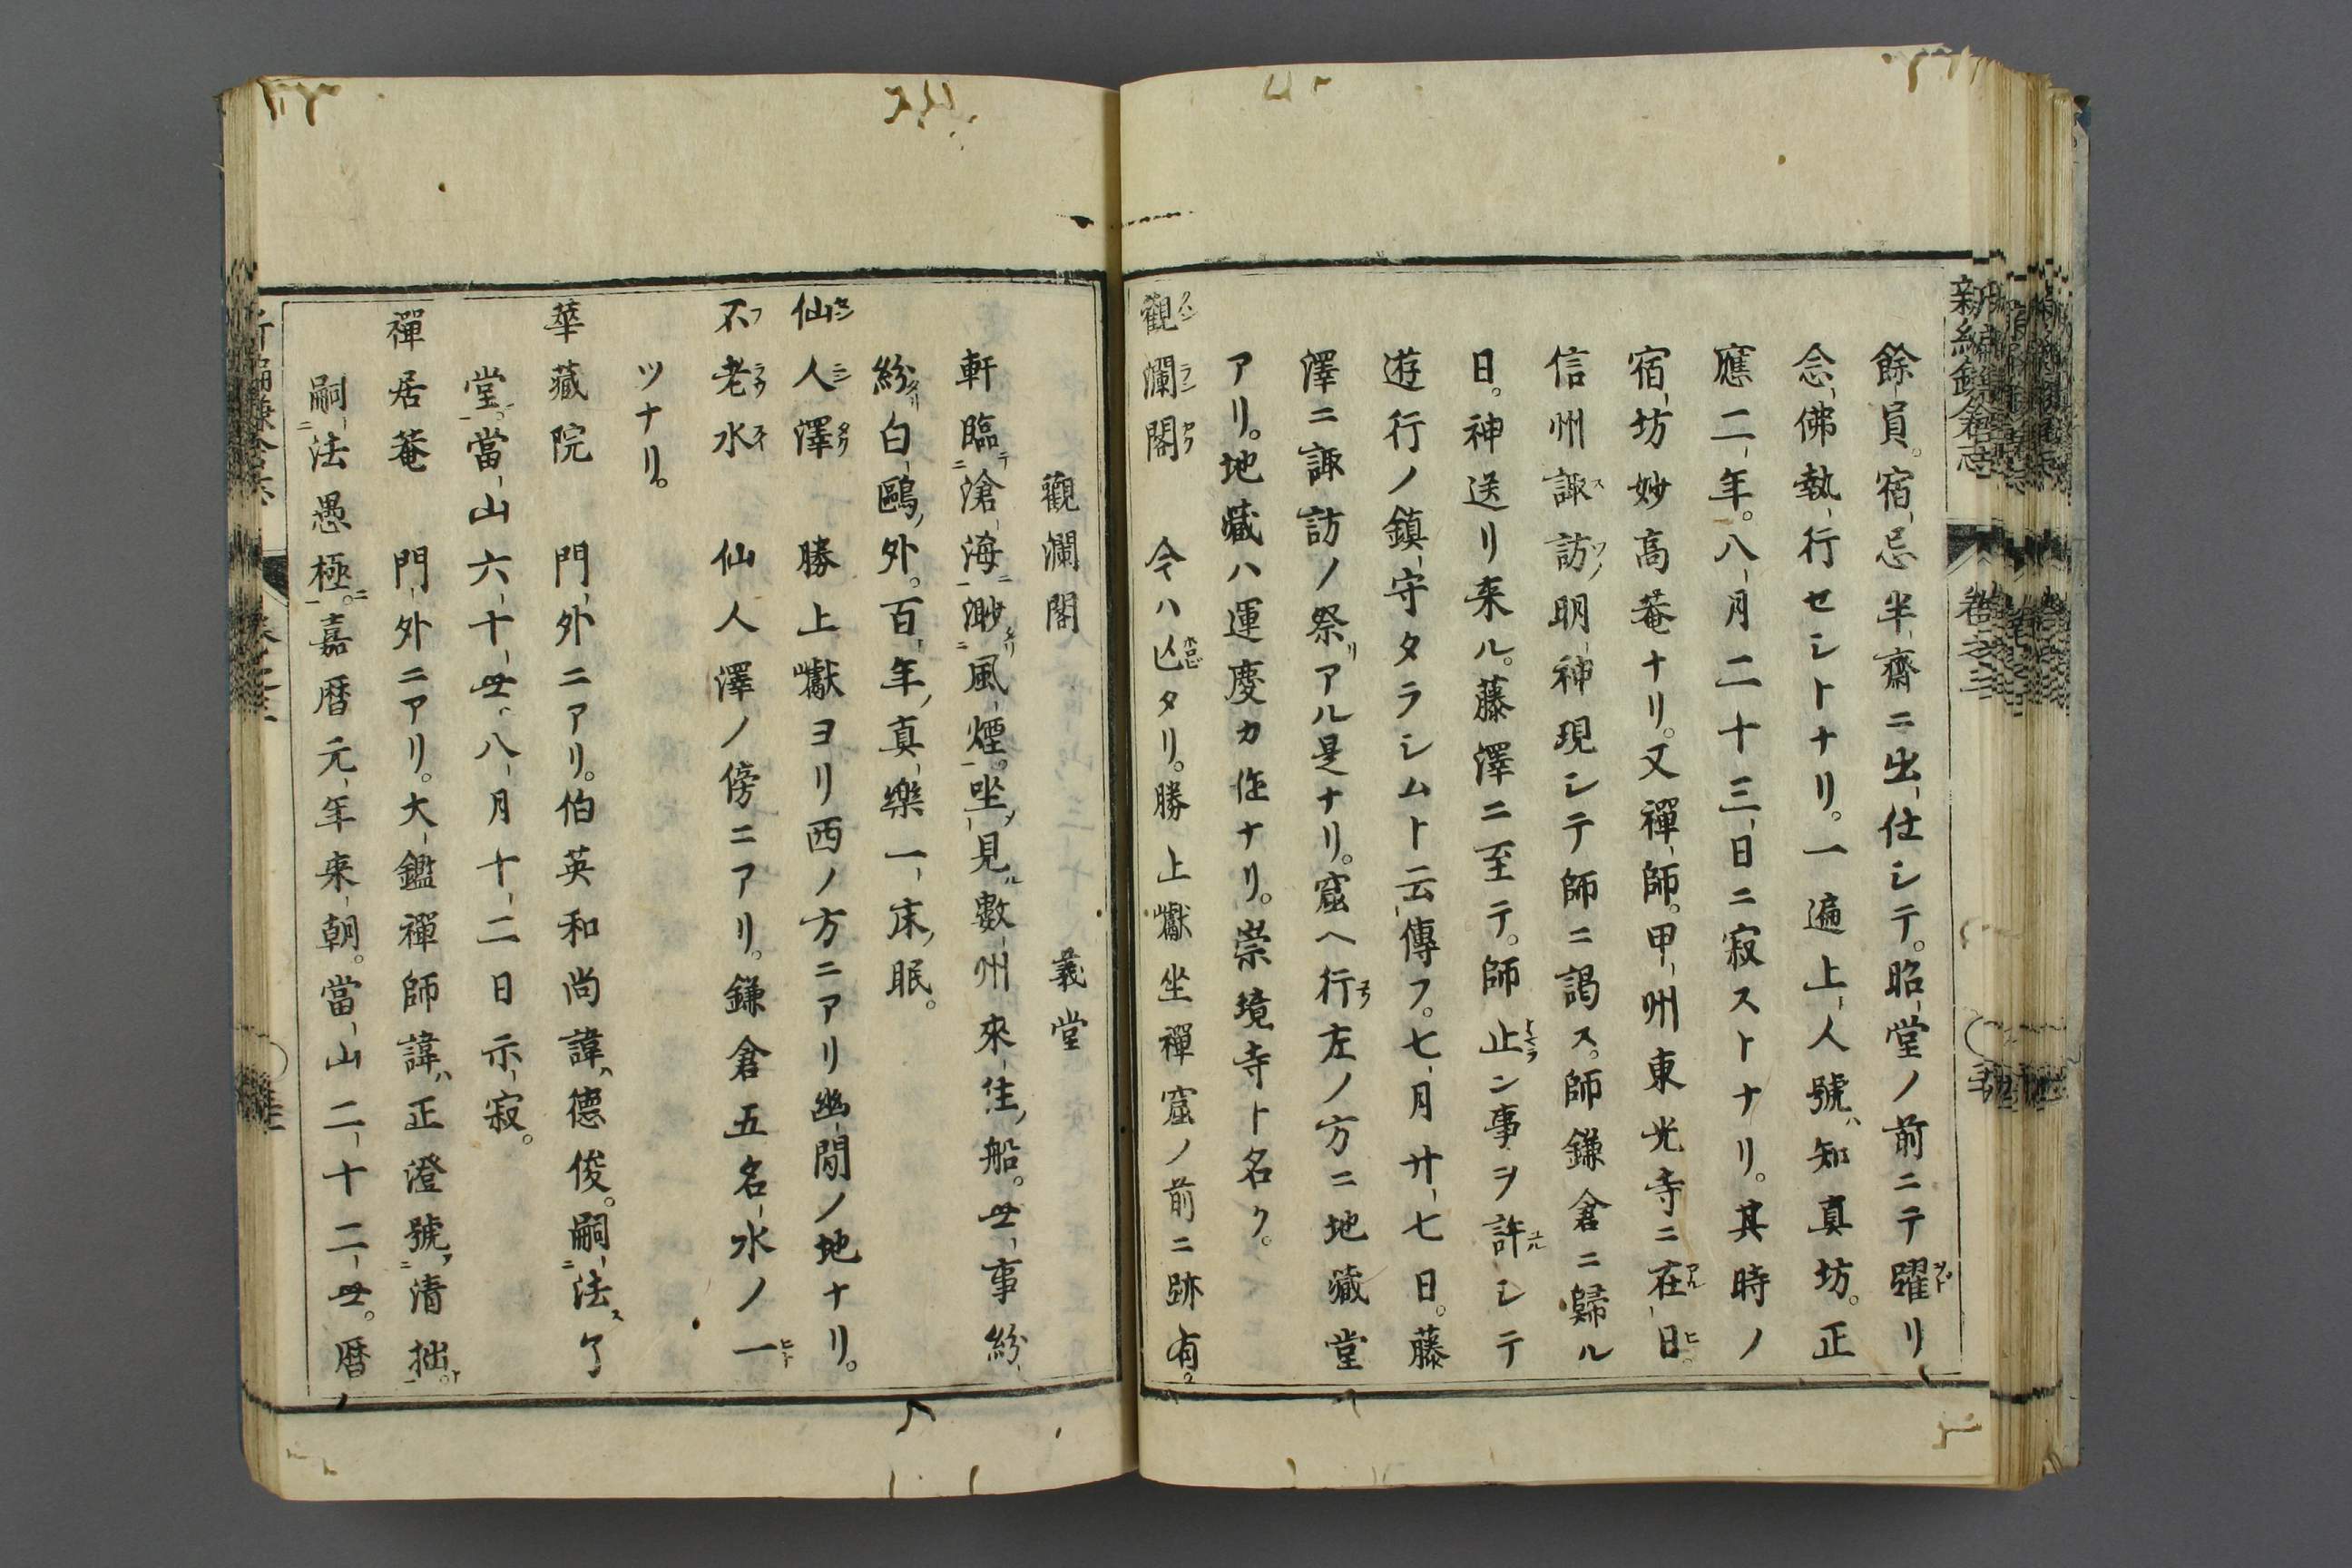 餘員。宿忌半齋ニ出仕シテ。昭堂ノ前ニテ躍リ
念佛執行セシトナリ。一遍上人號ハ知真坊。正
應二年。八月二十三日ニ寂ストナリ。其時ノ
宿坊妙高菴ナリ。又禪師。甲州東光寺ニ在日。
信州諏訪ノ明神現シテ師ニ謁ス。師鎌倉ニ歸ル
日。神送リ来ル。藤澤ニ至テ。師止ン事ヲ許シテ
遊行ノ鎮守タラシムト云傳フ。七月廿七日。藤
澤ニ諏訪ノ祭リアル是ナリ。窟ヘ行左ノ方ニ地藏堂
アリ。地藏ハ運慶カ作ナリ。崇境寺ト名ク。
觀瀾閣 今ハ亾タリ。勝上巘坐禪窟ノ前ニ跡有。
觀瀾閣 義堂
軒臨滄海渺風煙。坐見數州來往船。世事紛
紛白鷗外。百年真樂一床眠。
仙人澤 勝上巘ヨリ西ノ方ニアリ幽閒ノ地ナリ。
不老水 仙人澤ノ傍ニアリ。鎌倉五名水ノ一
ツナリ。
華藏院 門外ニアリ。伯英和尚諱ハ德俊。嗣法ス了
堂。當山六十世。八月十二日示寂。
禪居菴 門外ニアリ。大鑑禪師諱ハ正澄號清拙。
嗣法愚極。嘉暦元年来朝。當山二十二世。暦
新編鎌倉志 卷之三